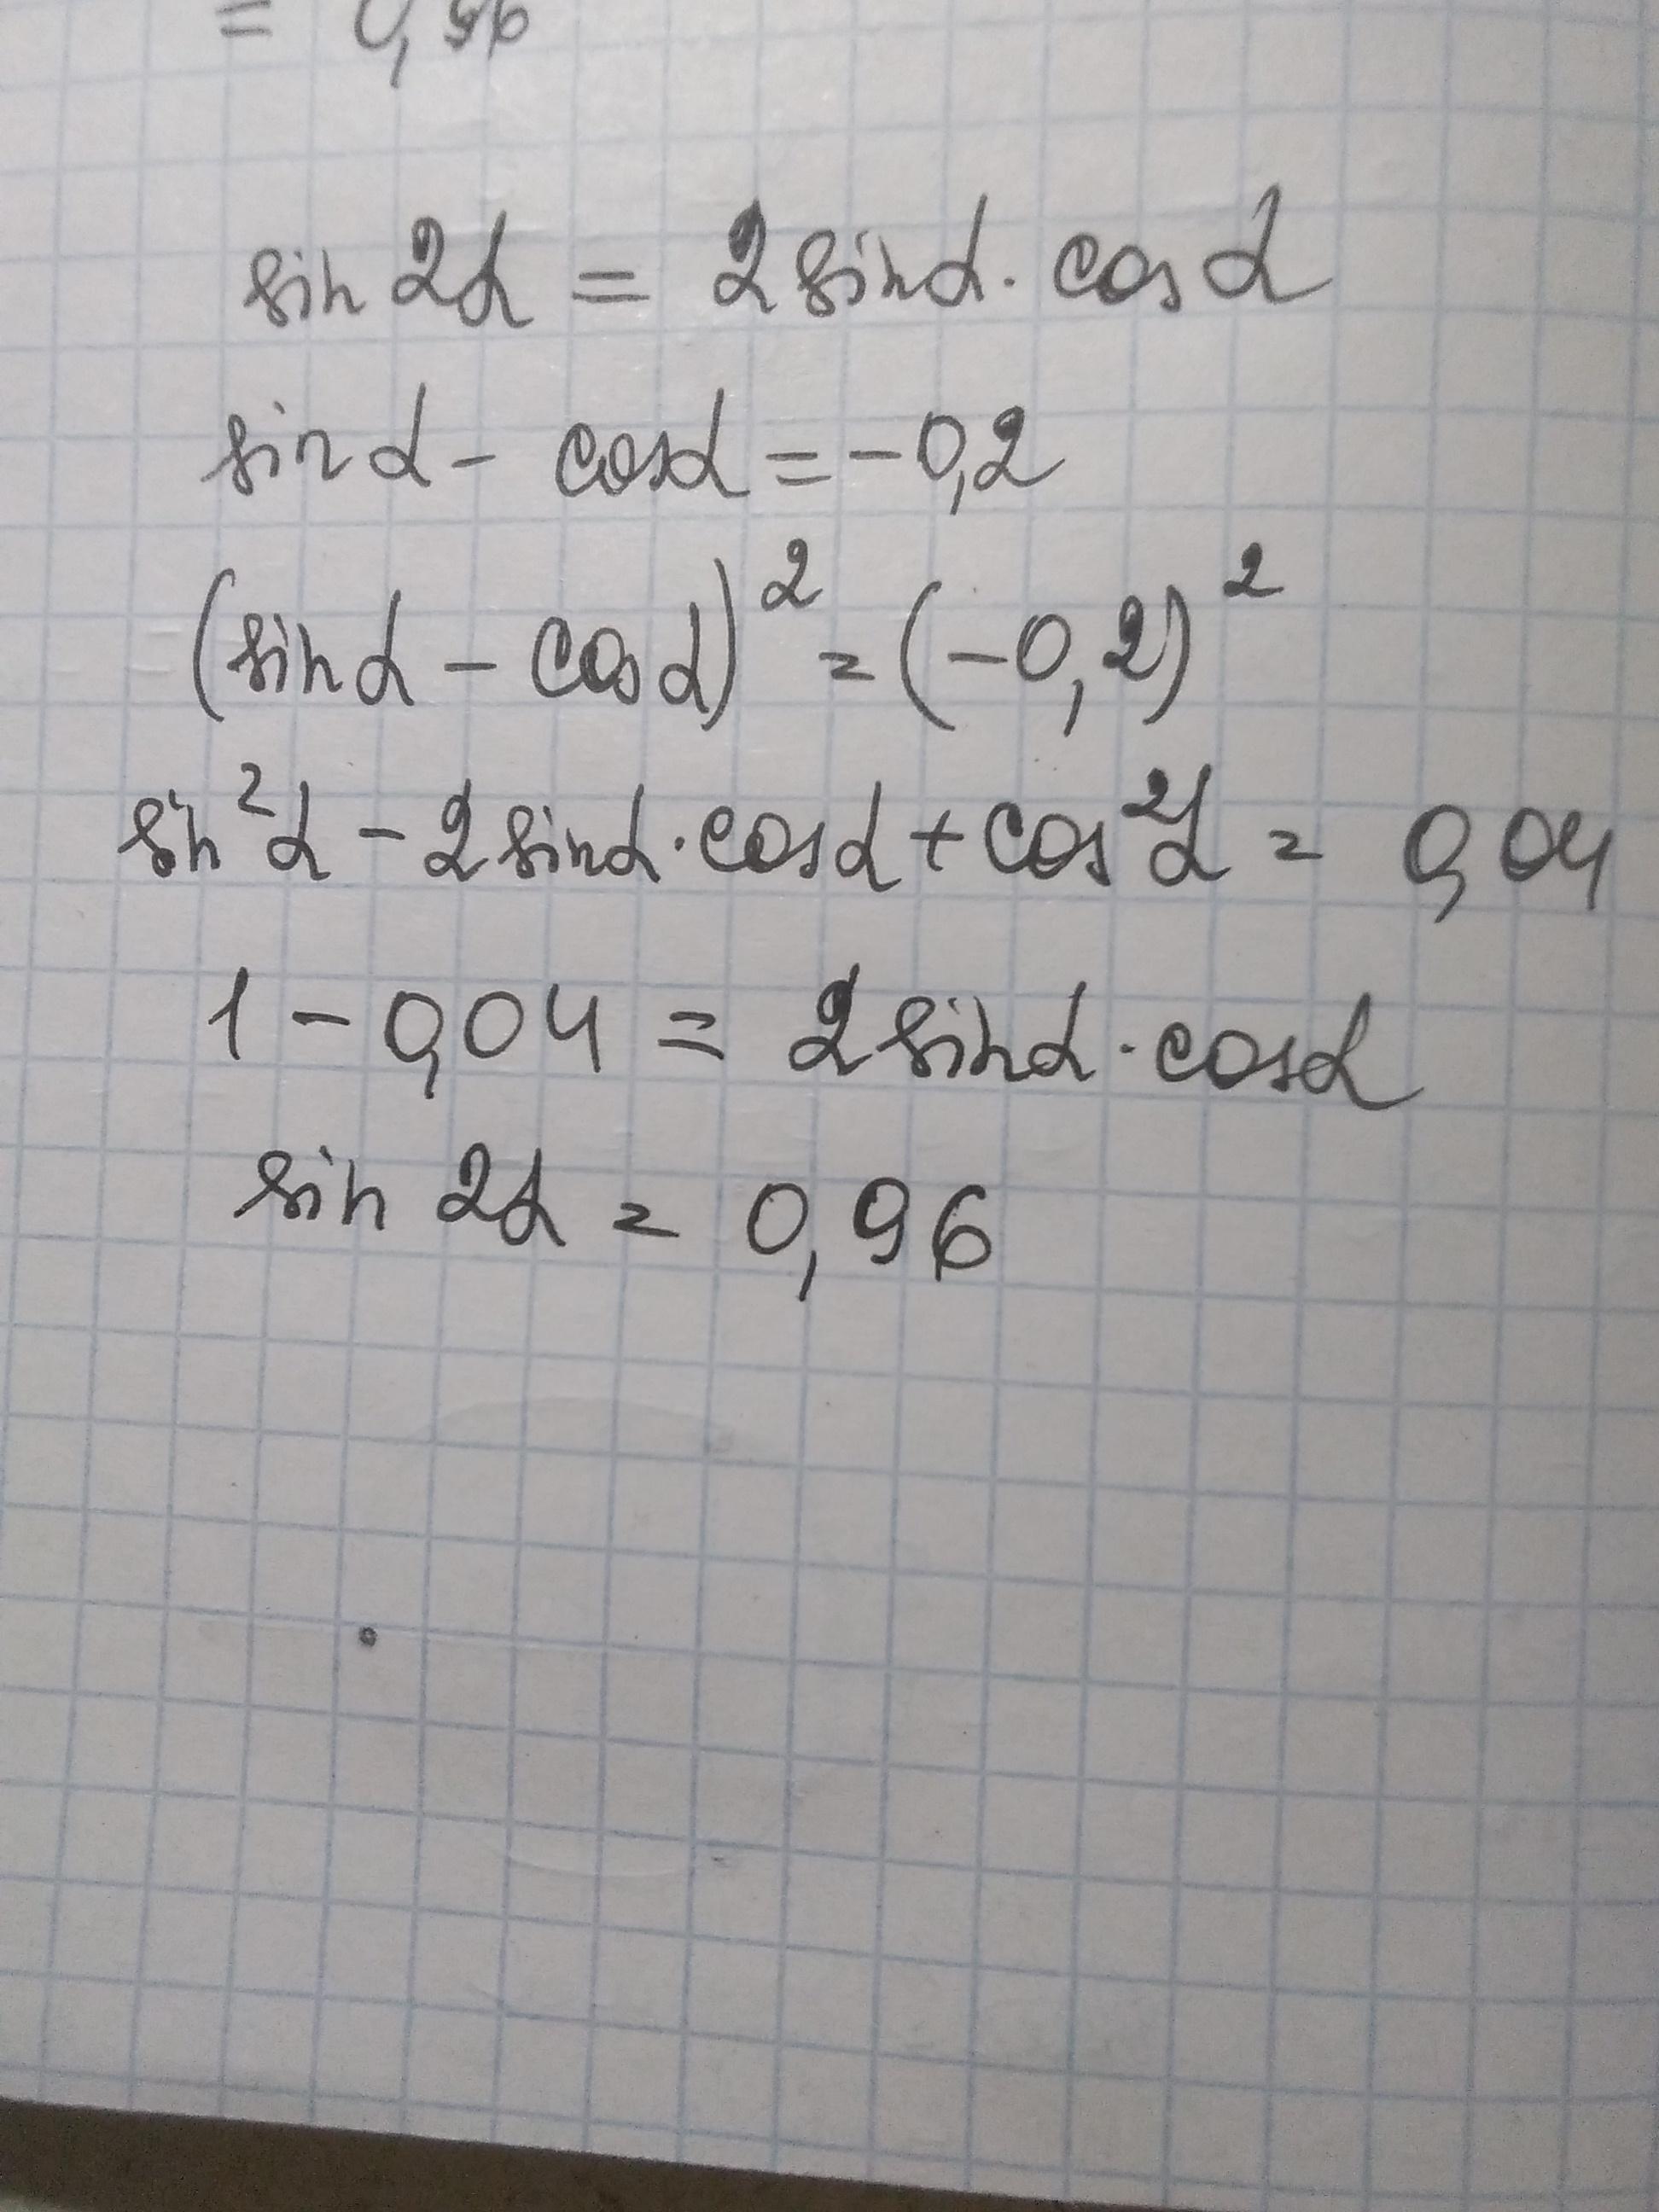 = 0,96
sin 2α = 2 sin α · cos α
sin α - cos α = -0,2
(sin α - cos α)² = (-0,2)²
sin²α - 2 sin α · cos α + cos²α = 0,04
1 - 0,04 = 2 sin α · cos α
sin 2α = 0,96